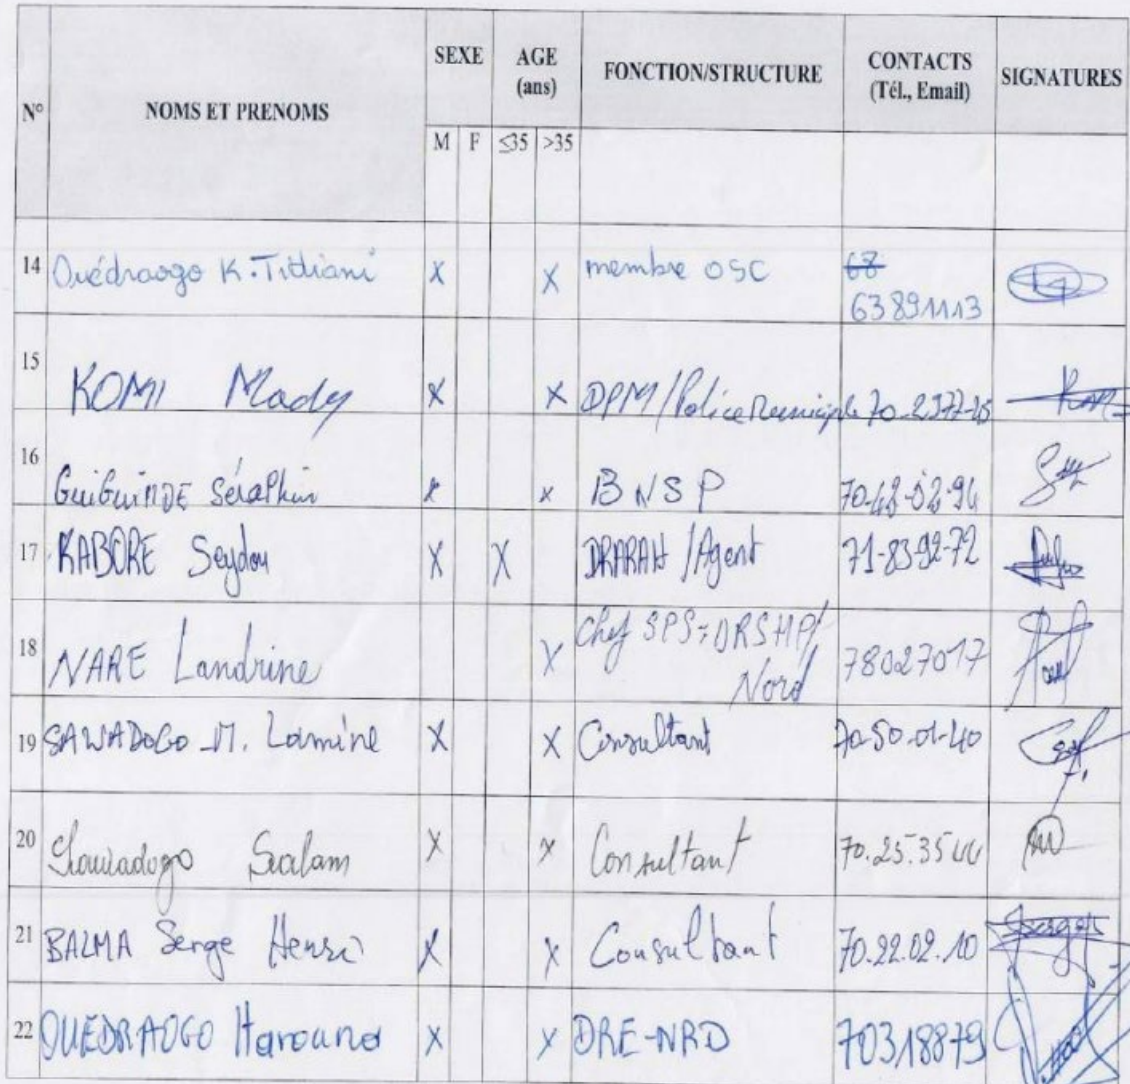 N° NOMS ET PRENOMS SEXE AGE (ans) FONCTION/STRUCTURE CONTACTS (Tél., Email) SIGNATURES
M F ≤35 >35
14 Ouédraogo K. Tidiani X X membre OSC 68
63891113
15 KOMI Mady X X DPM/Police Municiple 70-2377-25
16 GuiGuiMDE Séraphin X X BNSP 70-48-02-94
17 KABORE Seydou X X DRARAH/Agent 71-83-92-72
18 NARE Landrine X Chef SPS/DRSHP/
Nord 78027017
19 SAWADOGO M. Lamine X X Consultant 70-50-01-40
20 Sawadogo Salam X X Consultant 70.25.35 44
21 BALMA Serge Henri X X Consultant 70.22.02.10
22 OUEDRAOGO Harouna X X DRE-NRD 70318879